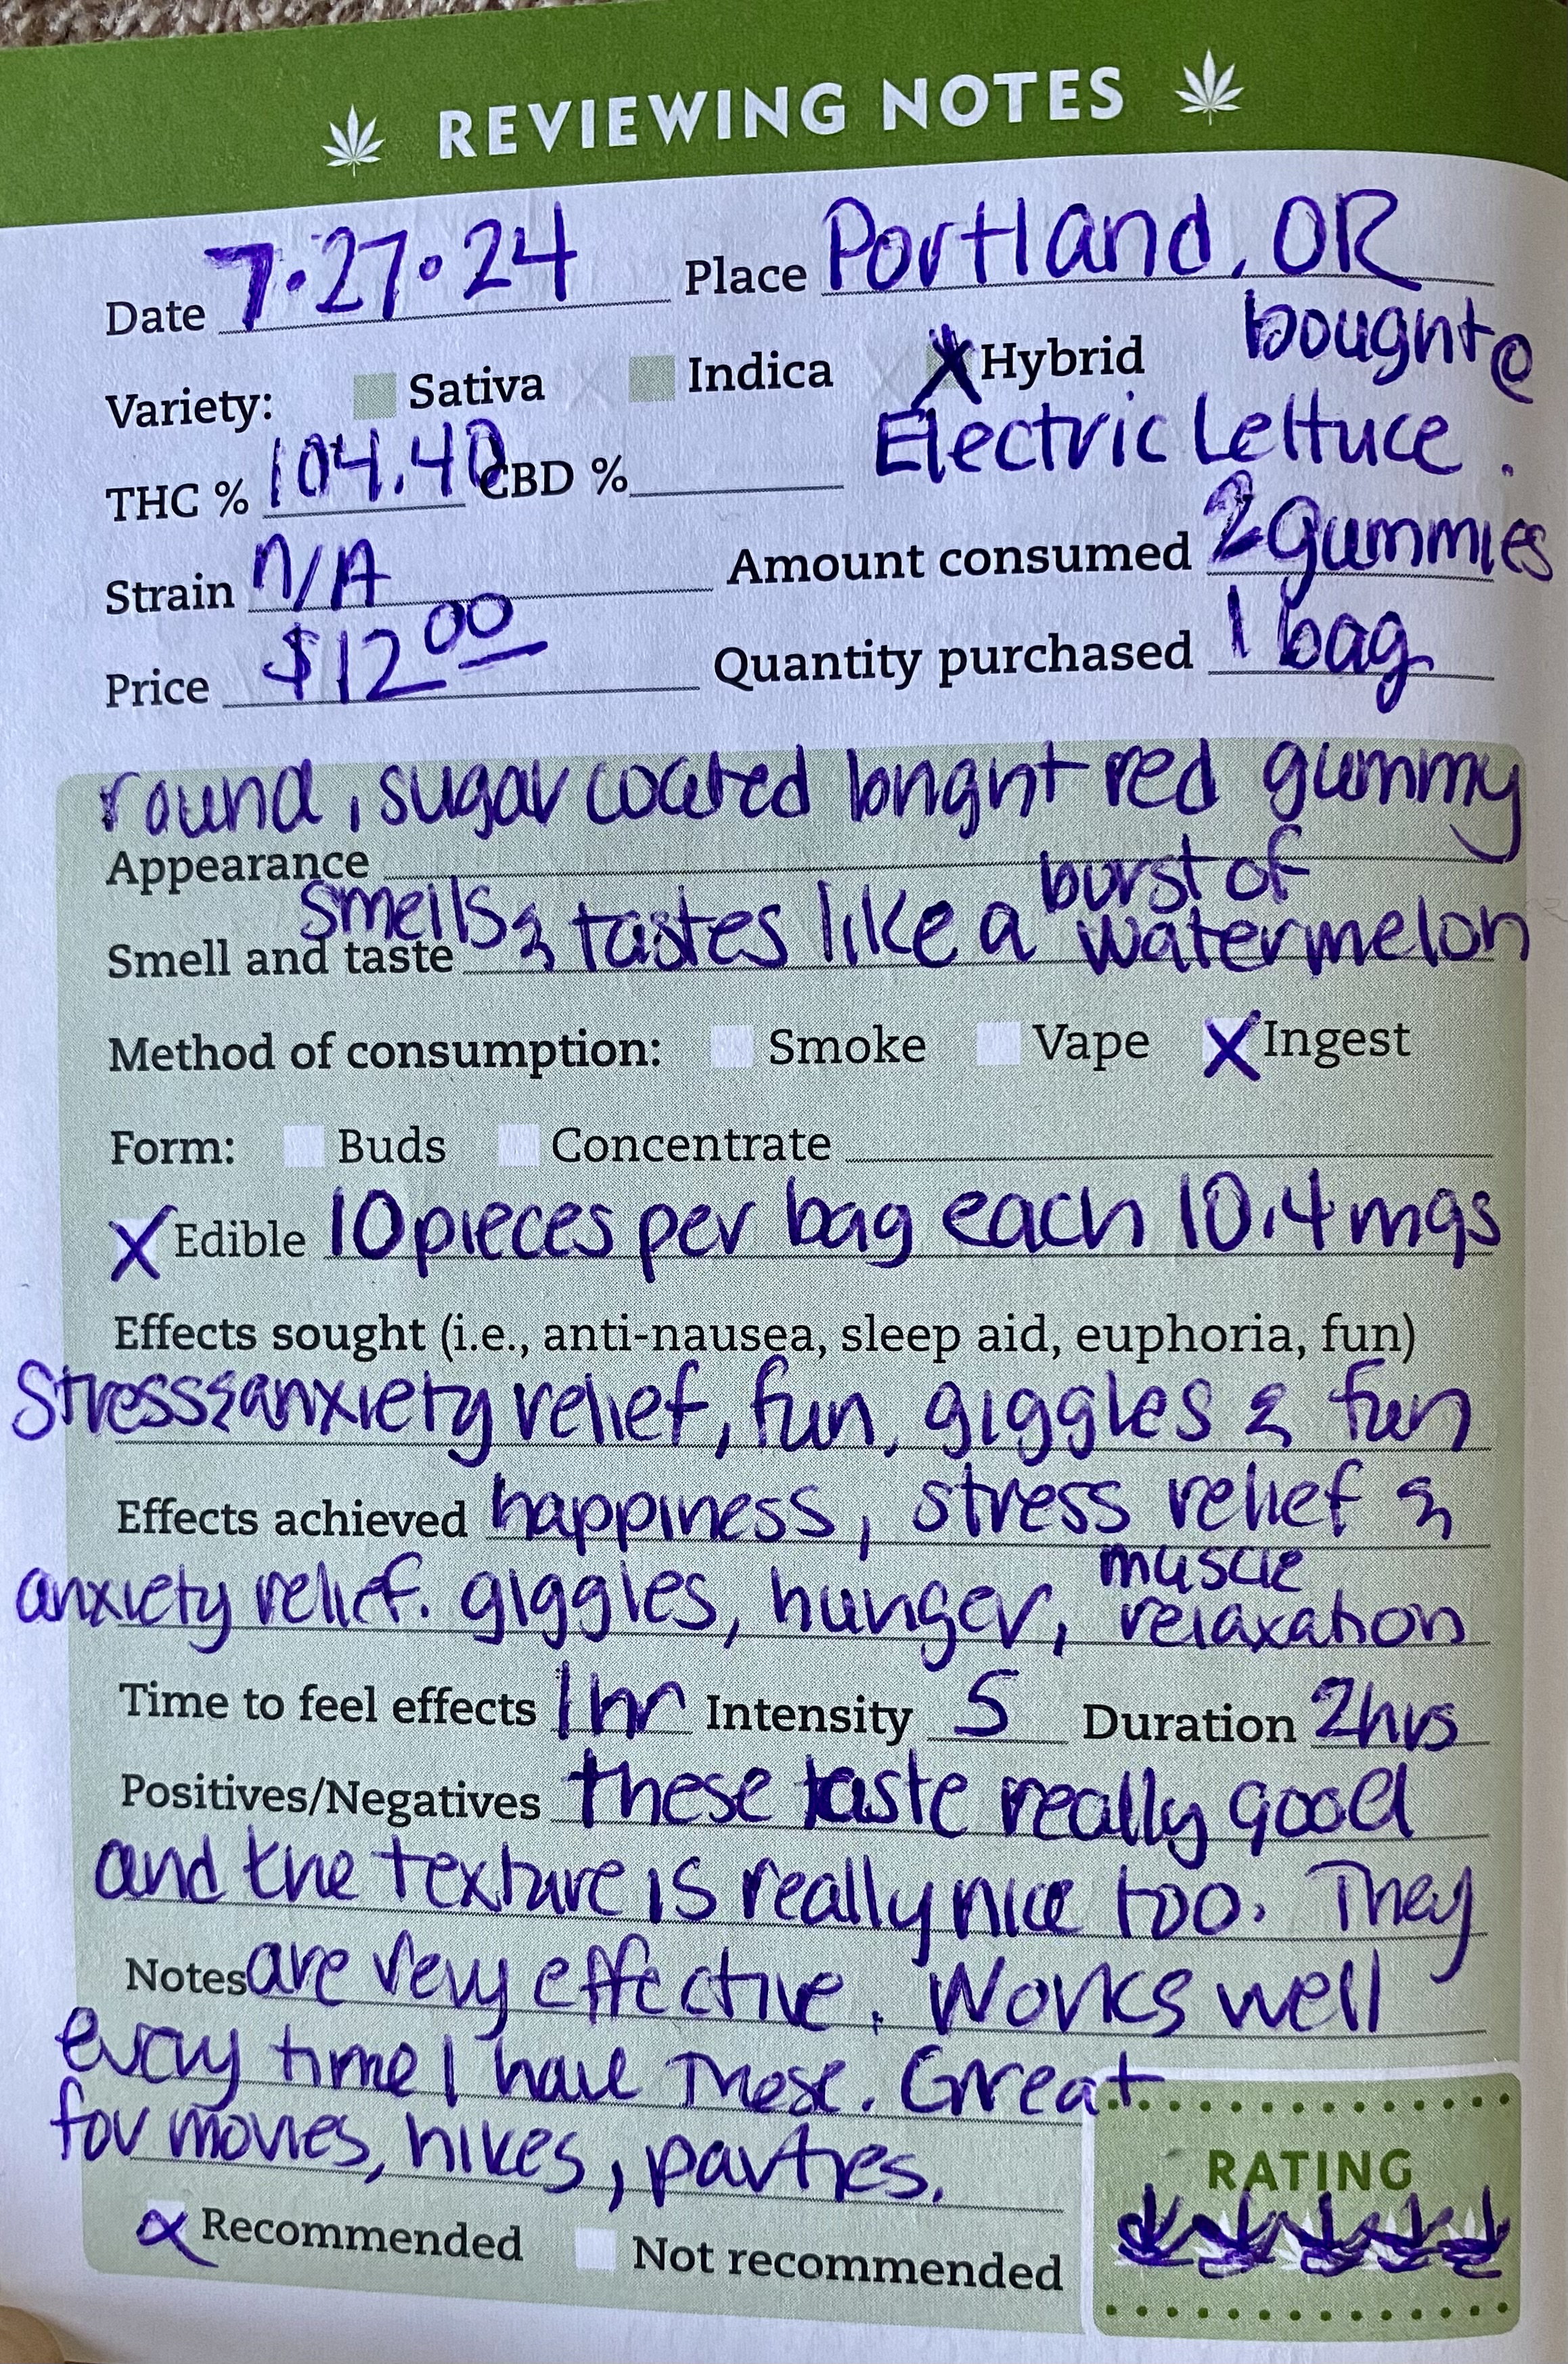 REVIEWING NOTES
Date 7.27.24 Place Portland, OR
Variety: Sativa Indica X Hybrid bought @
Electric Lettuce.
THC % 104.40 CBD %
Strain n/A Amount consumed 2 gummies
Price $12 00 Quantity purchased 1 bag
round, sugar coated bright red gummy
Appearance
Smell and taste smells & tastes like a burst of watermelon
Method of consumption: Smoke Vape X Ingest
Form: Buds Concentrate
X Edible 10 pieces per bag each 10.4 mgs
Effects sought (i.e., anti-nausea, sleep aid, euphoria, fun)
Stress & anxiety relief, fun, giggles & fun
Effects achieved happiness, stress relief &
anxiety relief. giggles, hunger, muscle relaxation
Time to feel effects 1hr Intensity 5 Duration 2hrs
Positives/Negatives these taste really good
and the texture is really nice too. They
Notes are very effective. Works well
every time I have These. Great
for movies, hikes, parties.
X Recommended Not recommended
RATING